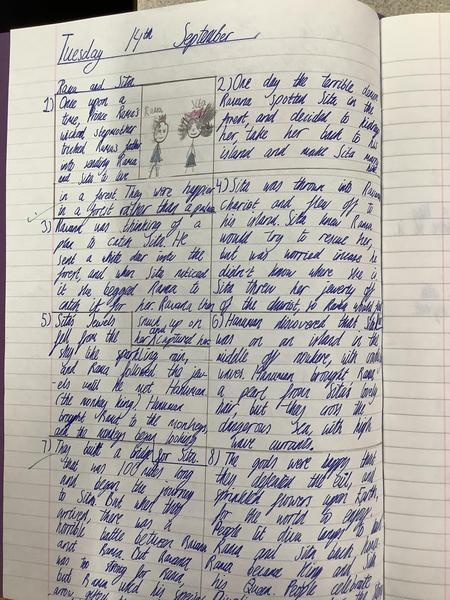 Tuesday 14th September
Rama and Sita
1) Once upon a
time, Prince Rama's
wicked stepmother
tricked Rama's father
into sending Rama
and Sita to live
in a forest. They were happier
in a forest rather than a palace
Rama
Sita
2) One day the terrible demon
Ravana spotted Sita in the
forest and decided to kidnap
her, take her back to his
island and make Sita marry
him
3) Ravana was thinking of a
plan to catch Sita. He
sent a white deer into the
forest, and when Sita noticed
it she begged Rama to
catch it for her. Ravana then
snuck up on
her and captured her
4) Sita was thrown into Ravana
chariot and flew off to
his island. Sita knew Rama
would try to rescue her,
but was worried incase he
didn't know where she is
Sita threw her jewelry off
of the chariot, so Rama would find
5) Sitas Jewels
fell from the
sky like sparkling rain,
and Rama followed the jew-
els until he met Hanuman
(the monkey king). Hanuman
brought Rama to the monkeys
and the monkeys began looking
for Sita
6) Hanuman discovered that Sita
was on an island in the
middle off nowhere, with
waves. Hanuman brought Rama
a pearl from Sita's lovely
hair, but they cross the
dangerous Sea with high
wave currants.
7) They built a bridge
that was 100 miles long
and began the journey
to Sita. But when they
arrived, there was a
horrible battle between Ravana
and Rama. But Ravana
was too strong for Rama,
but Rama used his special
arrow
8) The gods were happy that
they defeated the evil, and
sprinkled flowers upon Earth,
for the world to enjoy.
People lit diwa lamps to
Rama and Sita back home
Rama became King and Sita
his Queen. People celebrate